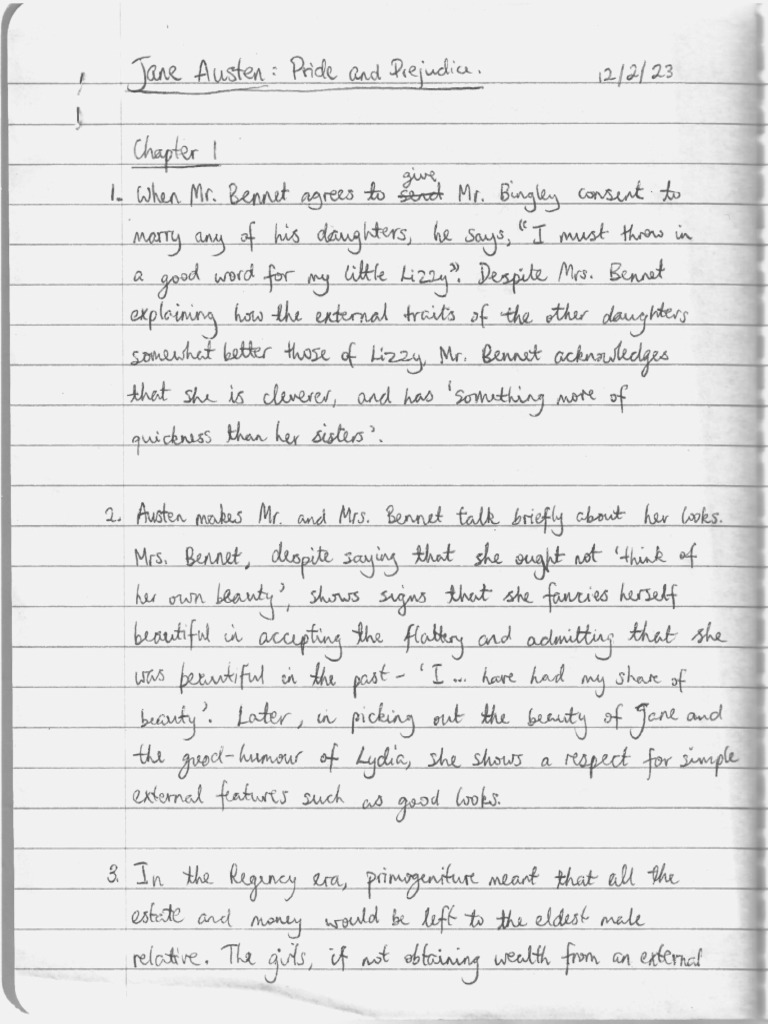 Jane Austen: Pride and Prejudice. 12/2/23
Chapter 1
give
1. When Mr. Bennet agrees to send Mr. Bingley consent to
marry any of his daughters, he says, "I must throw in
a good word for my little Lizzy". Despite Mrs. Bennet
explaining how the external traits of the other daughters
somewhat better those of Lizzy, Mr. Bennet acknowledges
that she is cleverer, and has 'something more of
quickness than her sisters'.
2. Austen makes Mr. and Mrs. Bennet talk briefly about her looks.
Mrs. Bennet, despite saying that she ought not 'think of
her own beauty', shows signs that she fancies herself
beautiful in accepting the flattery and admitting that she
was beautiful in the past - 'I ... have had my share of
beauty'. Later, in picking out the beauty of Jane and
the good-humour of Lydia, she shows a respect for simple
external features such as good looks.
3. In the Regency era, primogeniture meant that all the
estate and money would be left to the eldest male
relative. The girls, if not obtaining wealth from an external